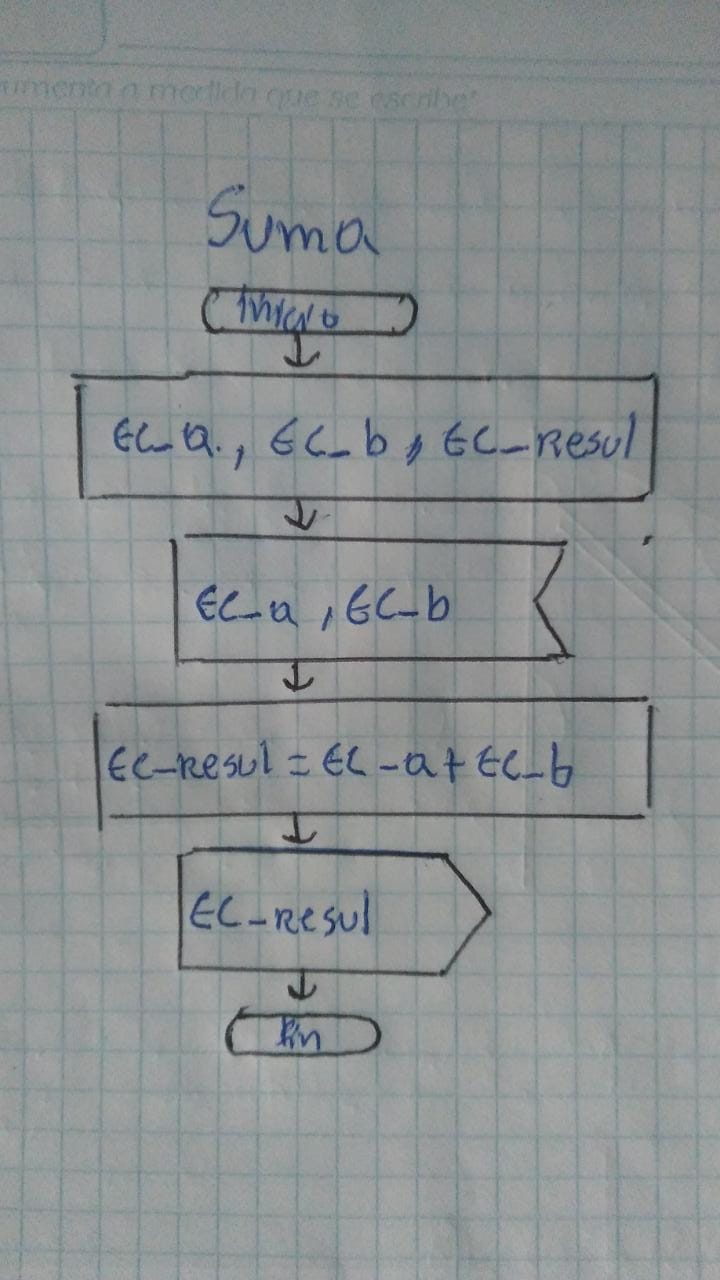 umenta a medida que se escribe"
Suma
Inicio
EC_a., EC_b, EC_resul
EC_a, EC_b
EC_resul = EC_a + EC_b
EC_resul
Fin